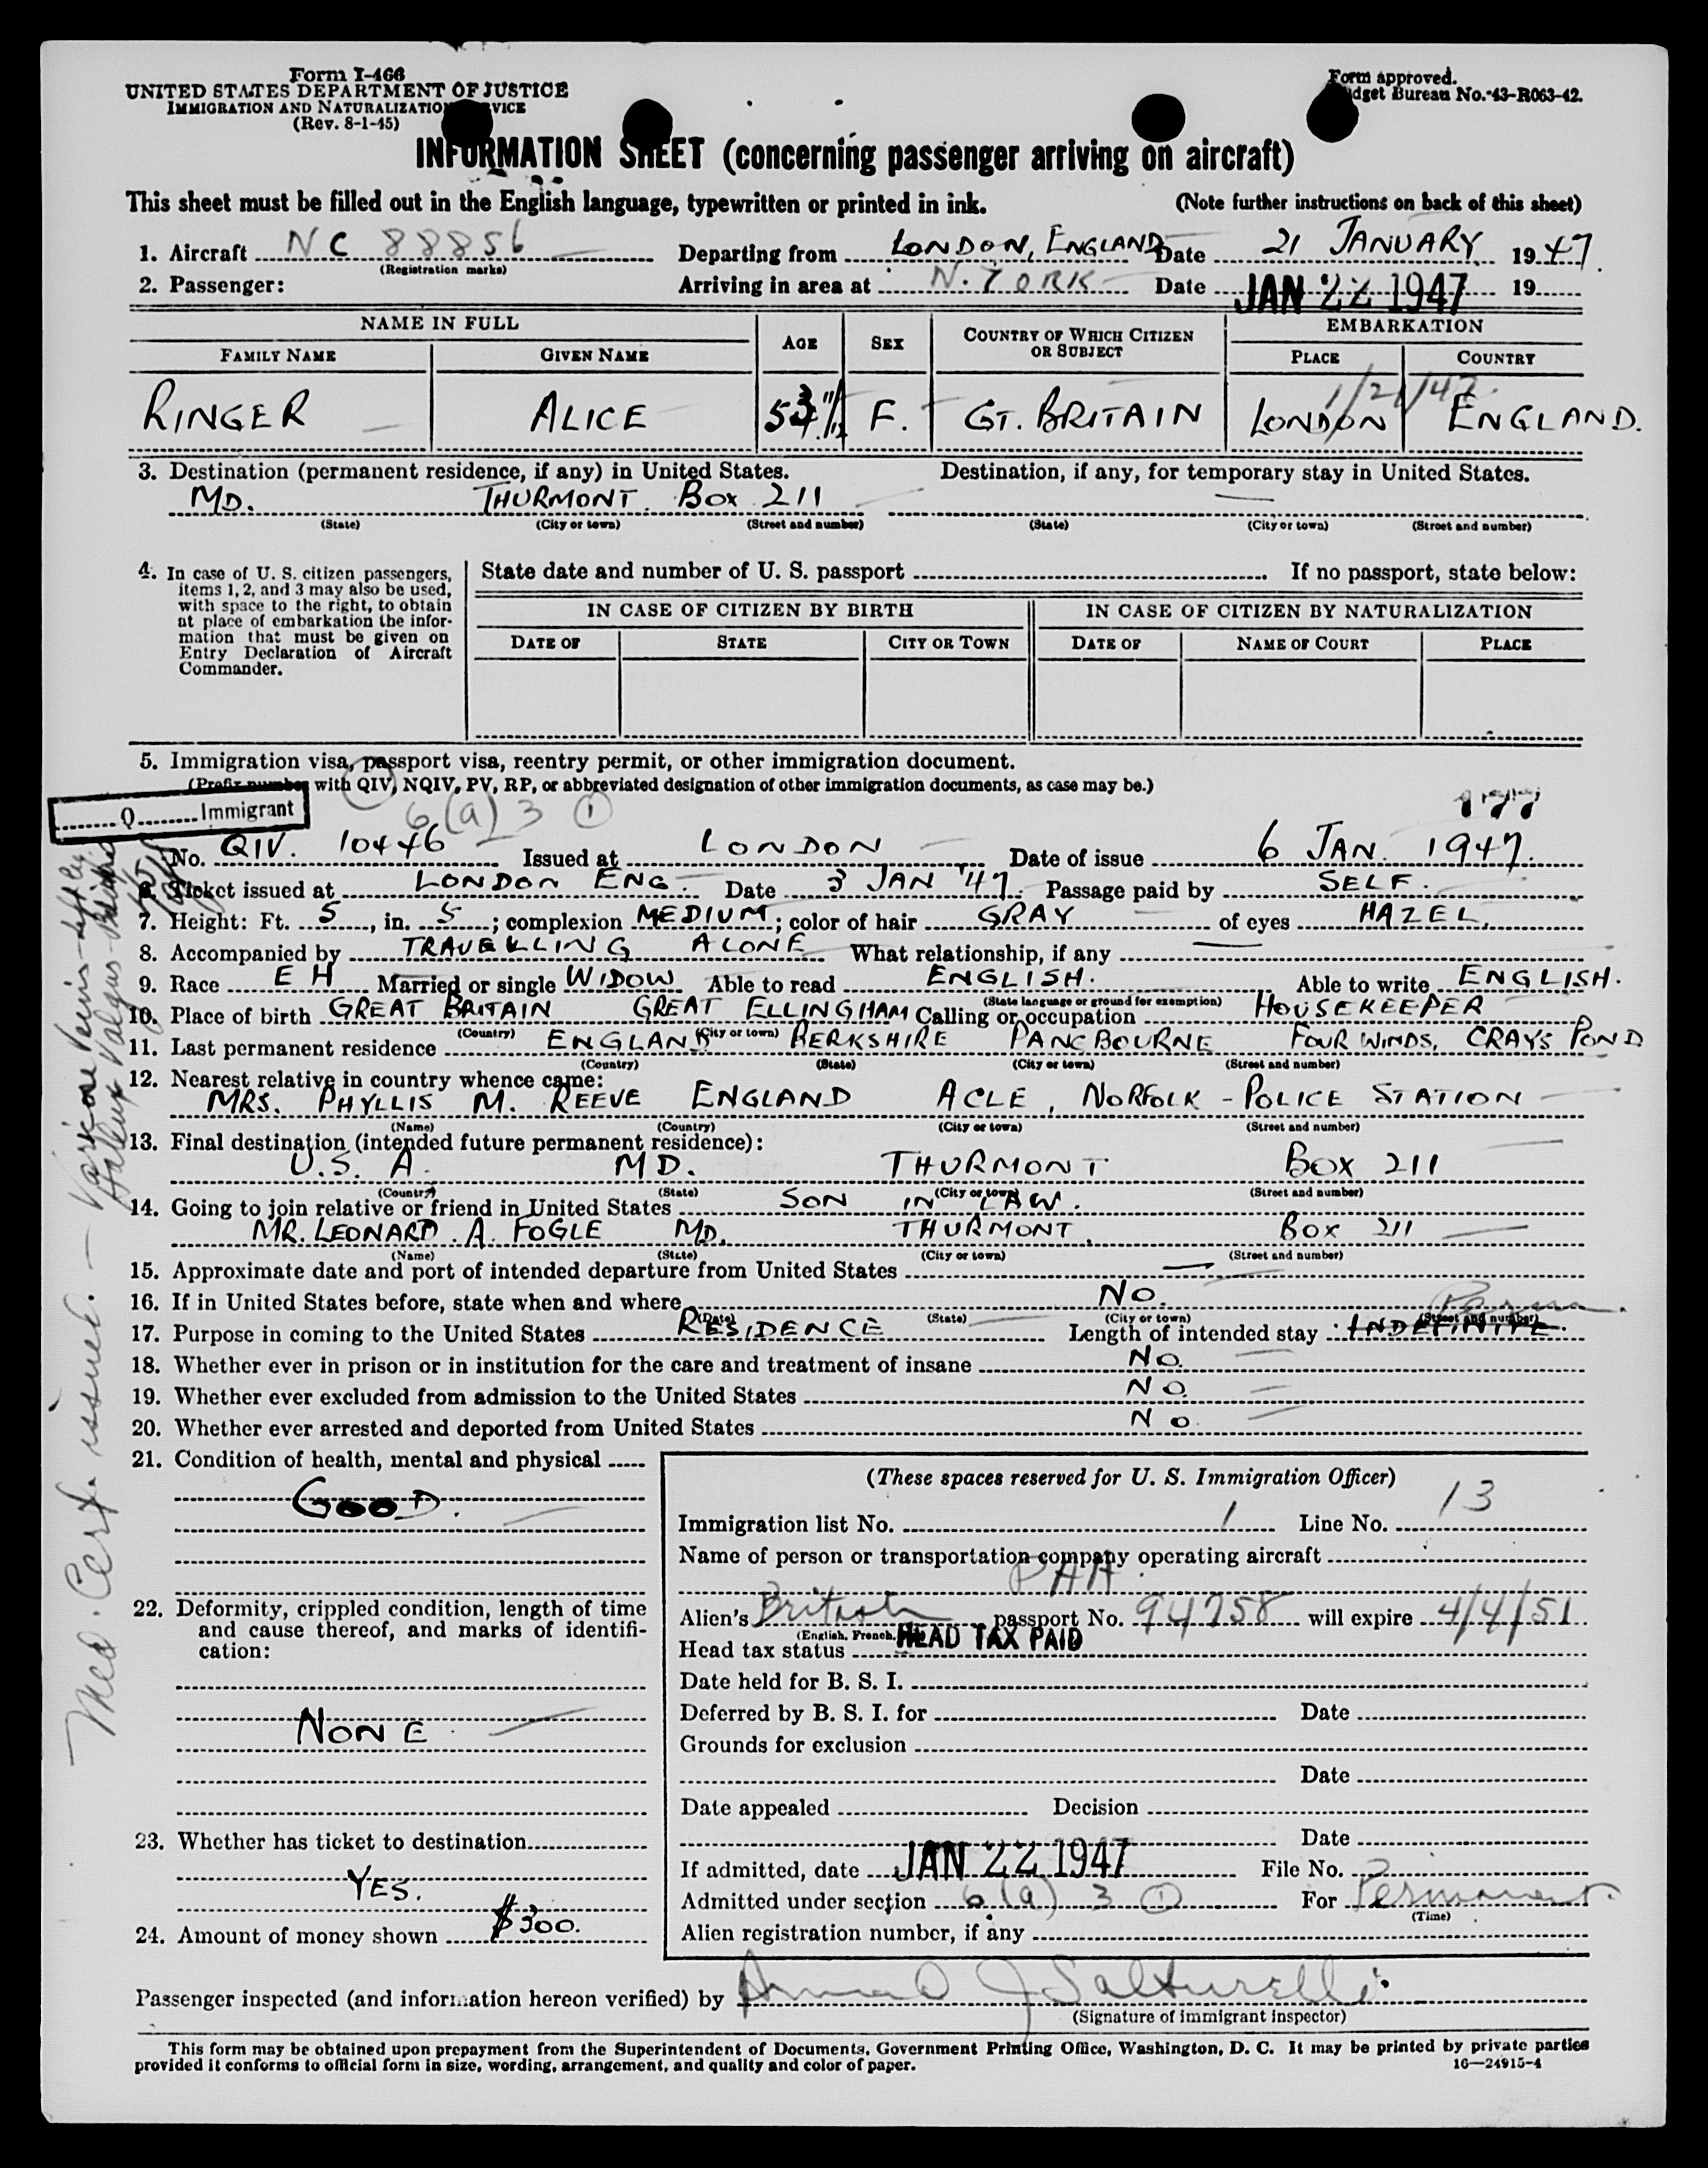 Form I-466
UNITED STATES DEPARTMENT OF JUSTICE
IMMIGRATION AND NATURALIZATION SERVICE
(Rev. 8-1-45)
Form approved.
Budget Bureau No. 43-R063-42.
INFORMATION SHEET (concerning passenger arriving on aircraft)
This sheet must be filled out in the English language, typewritten or printed in ink. (Note further instructions on back of this sheet)
1. Aircraft NC 88856 Departing from LONDON, ENGLAND Date 21 JANUARY 1947.
(Registration marks)
2. Passenger: Arriving in area at N. YORK Date JAN 22 1947 19
NAME IN FULL AGE SEX COUNTRY OF WHICH CITIZEN OR SUBJECT EMBARKATION
FAMILY NAME GIVEN NAME PLACE COUNTRY
1/21/47.
RINGER ALICE 53 11/12 F. GT. BRITAIN LONDON ENGLAND.
3. Destination (permanent residence, if any) in United States. Destination, if any, for temporary stay in United States.
MD. THURMONT. Box 211 —
(State) (City or town) (Street and number) (State) (City or town) (Street and number)
4. In case of U. S. citizen passengers, items 1, 2, and 3 may also be used, with space to the right, to obtain at place of embarkation the information that must be given on Entry Declaration of Aircraft Commander.
State date and number of U. S. passport If no passport, state below:
IN CASE OF CITIZEN BY BIRTH IN CASE OF CITIZEN BY NATURALIZATION
DATE OF STATE CITY OR TOWN DATE OF NAME OF COURT PLACE
5. Immigration visa, passport visa, reentry permit, or other immigration document.
(Prefix number with QIV, NQIV, PV, RP, or abbreviated designation of other immigration documents, as case may be.)
Q Immigrant 6(a) 3 (1) 177
No. QIV. 10446 Issued at LONDON Date of issue 6 JAN. 1947.
6. Ticket issued at LONDON ENG. Date 3 JAN '47. Passage paid by SELF.
7. Height: Ft. 5, in. 5; complexion MEDIUM; color of hair GRAY of eyes HAZEL.
8. Accompanied by TRAVELLING ALONE What relationship, if any —
9. Race EH Married or single WIDOW Able to read ENGLISH. Able to write ENGLISH.
(State language or ground for exemption)
10. Place of birth GREAT BRITAIN GREAT ELLINGHAM Calling or occupation HOUSEKEEPER
(Country) (City or town)
11. Last permanent residence ENGLAND BERKSHIRE PANGBOURNE FOUR WINDS, CRAYS POND
(Country) (State) (City or town) (Street and number)
12. Nearest relative in country whence came:
MRS. PHYLLIS M. REEVE ENGLAND ACLE, NORFOLK - POLICE STATION
(Name) (Country) (City or town) (Street and number)
13. Final destination (intended future permanent residence):
U.S.A. MD. THURMONT Box 211
(Country) (State) (City or town) (Street and number)
14. Going to join relative or friend in United States SON IN LAW.
MR. LEONARD. A. FOGLE MD. THURMONT. Box 211
(Name) (State) (City or town) (Street and number)
15. Approximate date and port of intended departure from United States —
16. If in United States before, state when and where NO.
(Date) (State) (City or town) (Street and number)
Perm.
17. Purpose in coming to the United States RESIDENCE Length of intended stay INDEFINITE.
18. Whether ever in prison or in institution for the care and treatment of insane NO.
19. Whether ever excluded from admission to the United States NO.
20. Whether ever arrested and deported from United States NO.
21. Condition of health, mental and physical
GOOD.
22. Deformity, crippled condition, length of time and cause thereof, and marks of identification:
NONE
23. Whether has ticket to destination
YES.
24. Amount of money shown $300.
(These spaces reserved for U. S. Immigration Officer)
Immigration list No. 1 Line No. 13
Name of person or transportation company operating aircraft
PAA
Alien's British passport No. 94758 will expire 4/4/51.
(English, French,
Head tax status HEAD TAX PAID
Date held for B. S. I.
Deferred by B. S. I. for Date
Grounds for exclusion
Date
Date appealed Decision
Date
If admitted, date JAN 22 1947 File No.
Admitted under section 6(a) 3 (1) For Permanent.
(Time)
Alien registration number, if any
Passenger inspected (and information hereon verified) by
(Signature of immigrant inspector)
This form may be obtained upon prepayment from the Superintendent of Documents, Government Printing Office, Washington, D. C. It may be printed by private parties
provided it conforms to official form in size, wording, arrangement, and quality and color of paper. 16—24915-4
Med. Cert. issued. — Varicose Veins
Hallux Valgus